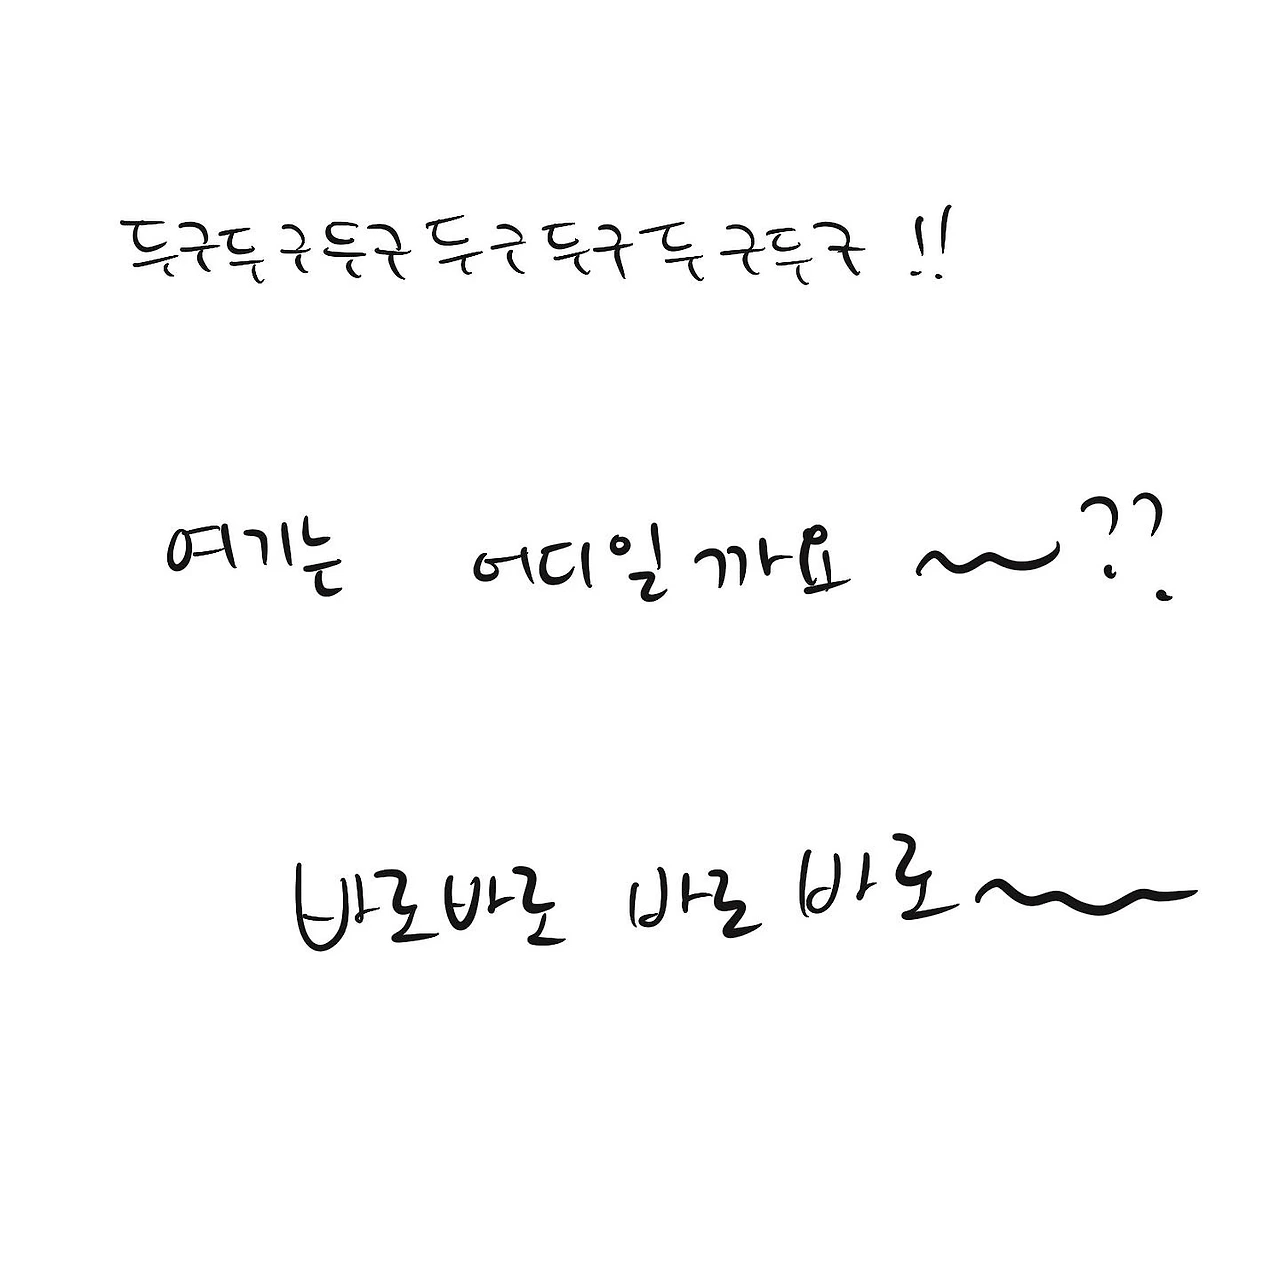 두구두구두구두구두구두구두구 !!
여기는 어디일까요 ~??
바로바로 바로 바로~